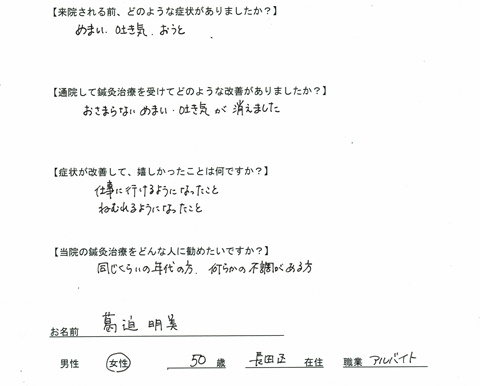 【来院される前、どのような症状がありましたか？】
めまい．吐き気．おうと
【通院して鍼灸治療を受けてどのような改善がありましたか？】
おさまらないめまい・吐き気が消えました
【症状が改善して、嬉しかったことは何ですか？】
仕事に行けるようになったこと
ねむれるようになったこと
【当院の鍼灸治療をどんな人に勧めたいですか？】
同じくらいの年代の方．何らかの不調がある方
お名前 葛迫 明美
男性 女性 50 歳 長田区 在住 職業 アルバイト